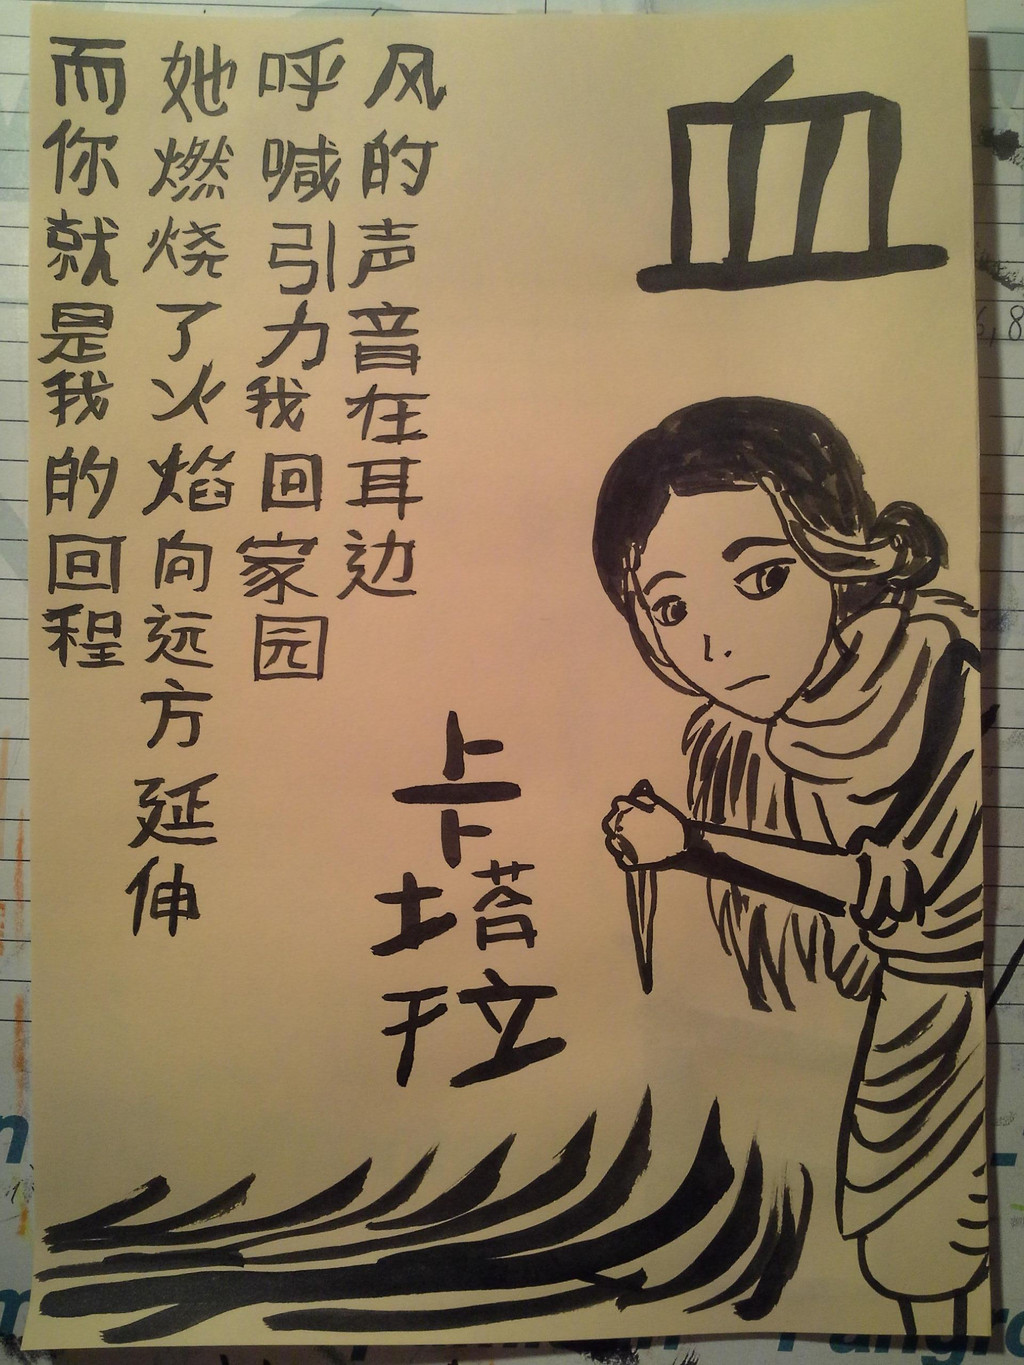 血
风的声音在耳边
呼喊引力我回家园
她燃烧了火焰向远方延伸
而你就是我的回程
卡塔拉